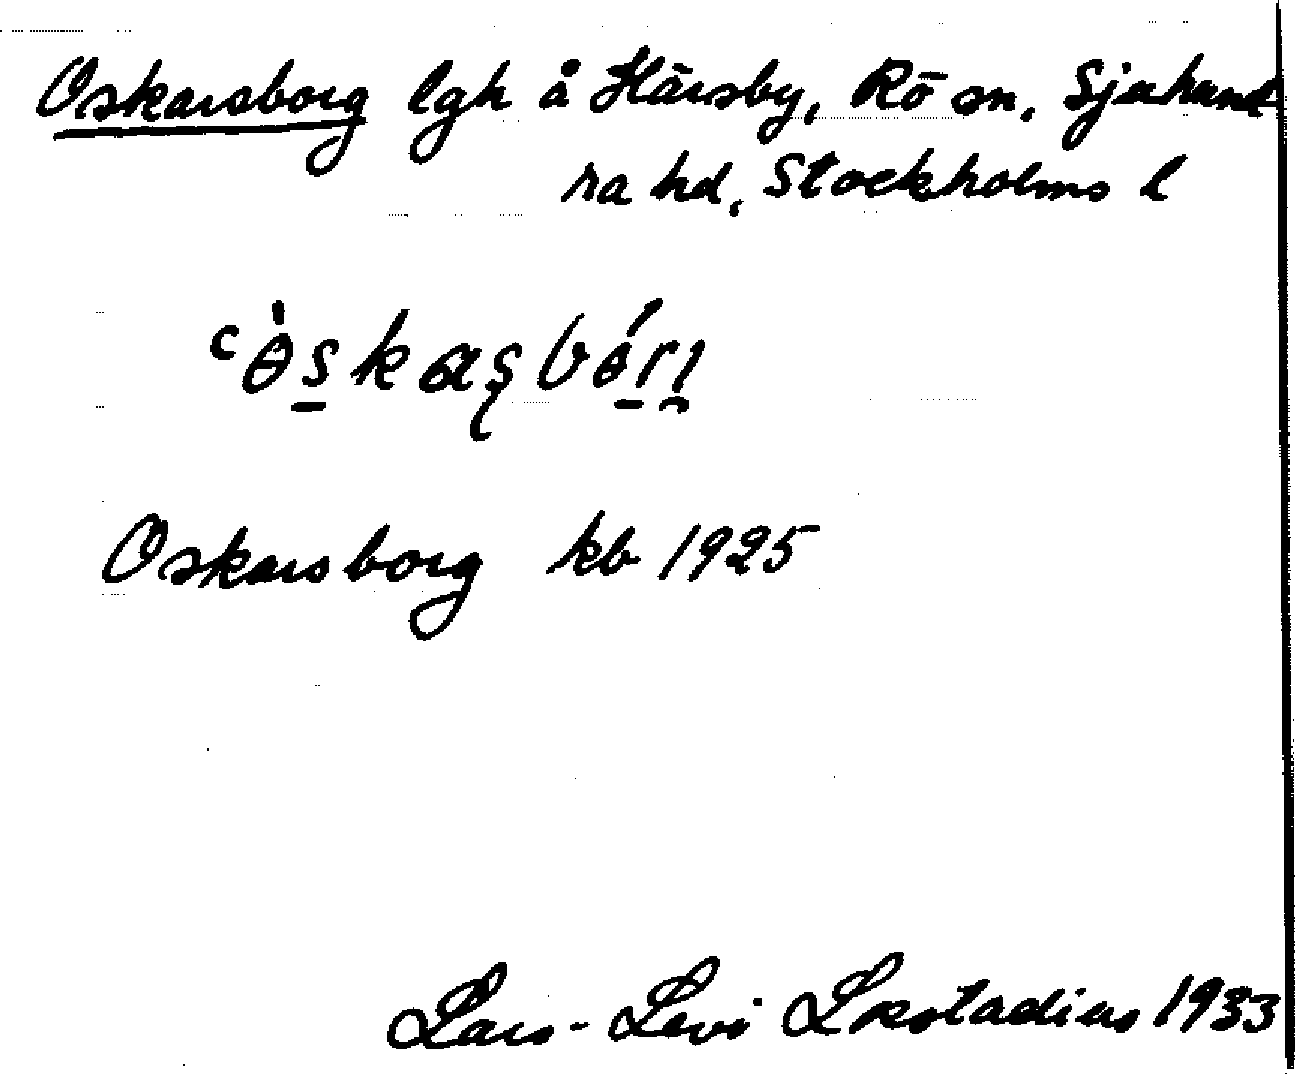 Oskarsborg lgh å Härsby, Rö sn, Sjuhund
ra hd, Stockholms l
Oskarsborg kb 1925
Lars-Levi Læstadius 1933